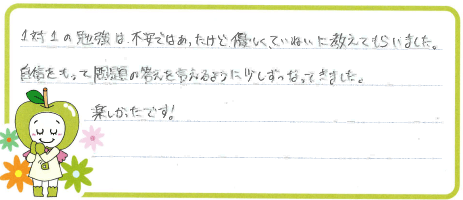 1対1の勉強は、不安ではあったけど優しく、ていねいに教えてもらいました。
自信をもって問題の答えを言えるように少しずつなってきました。
楽しかったです!